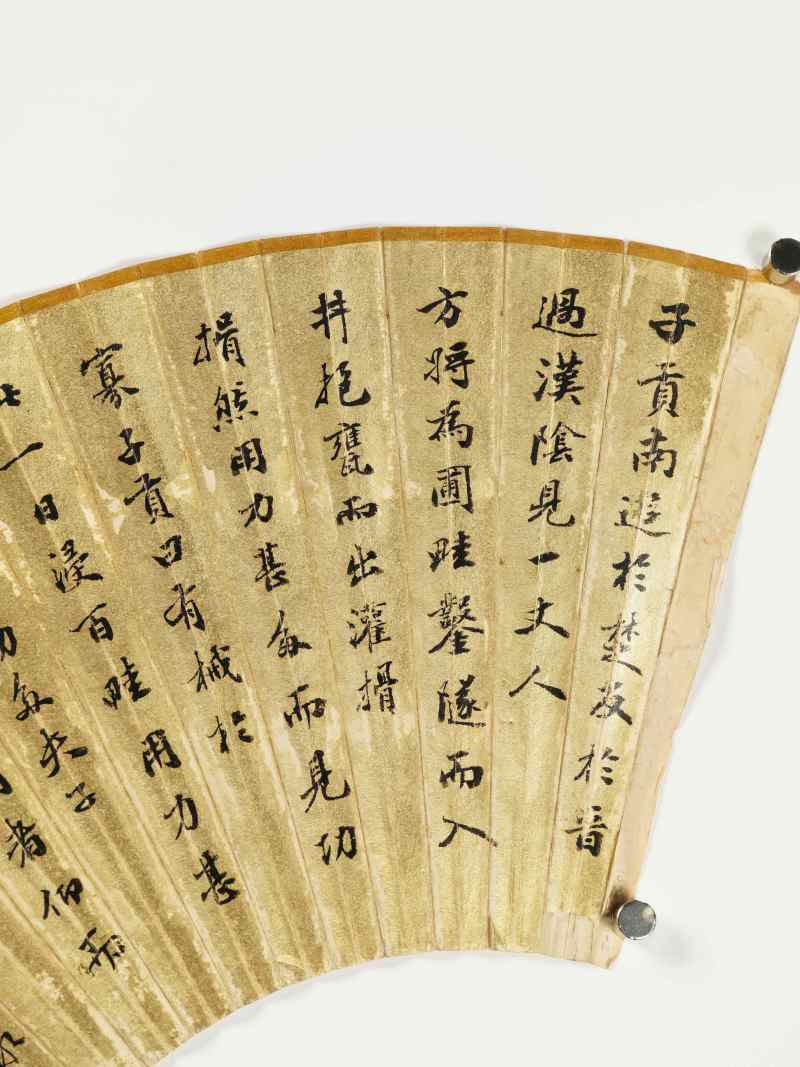 子貢南遊於楚反於晉
過漢陰見一丈人
方將為圃畦鑿隧而入
井抱甕而出灌搰
搰然用力甚多而見功
寡子貢曰有械於
此一日浸百畦用力甚
功多夫子
者仰而